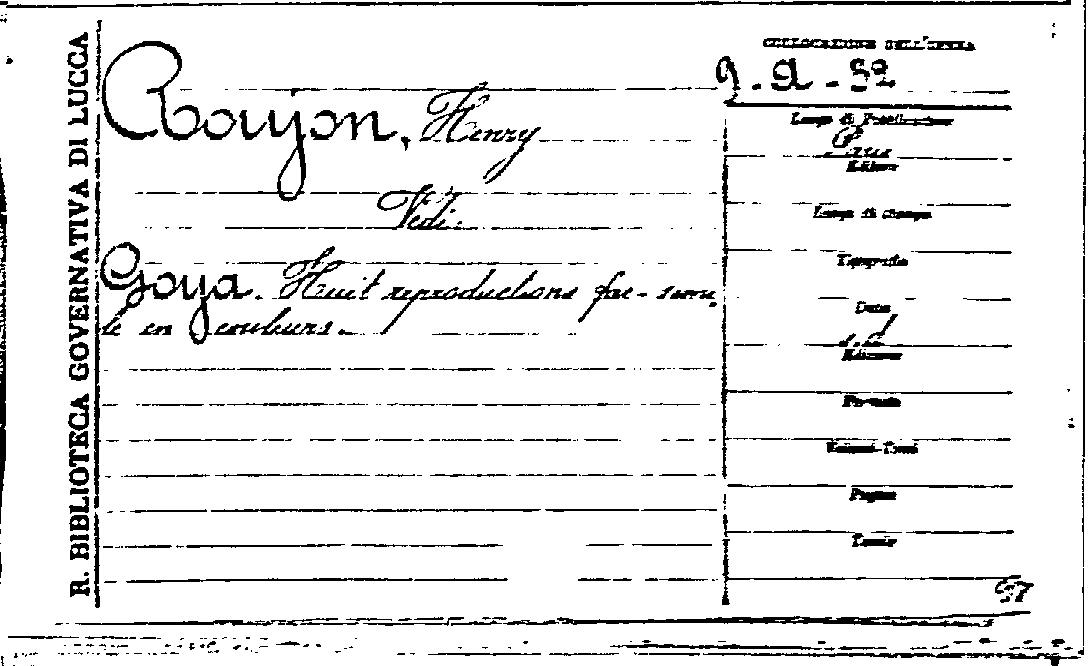 R. BIBLIOTECA GOVERNATIVA DI LUCCA
COLLOCAZIONE DELL'OPERA
Roujon, Henry
Vedi:
Goya. Huit reproductions fac-simi
le en couleurs.
Luogo di Pubblicazione
Paris
Editore
Luogo di stampa
Tipografia
Data
s.d.
Edizione
Formato
Volumi-Tomi
Pagine
Tavole